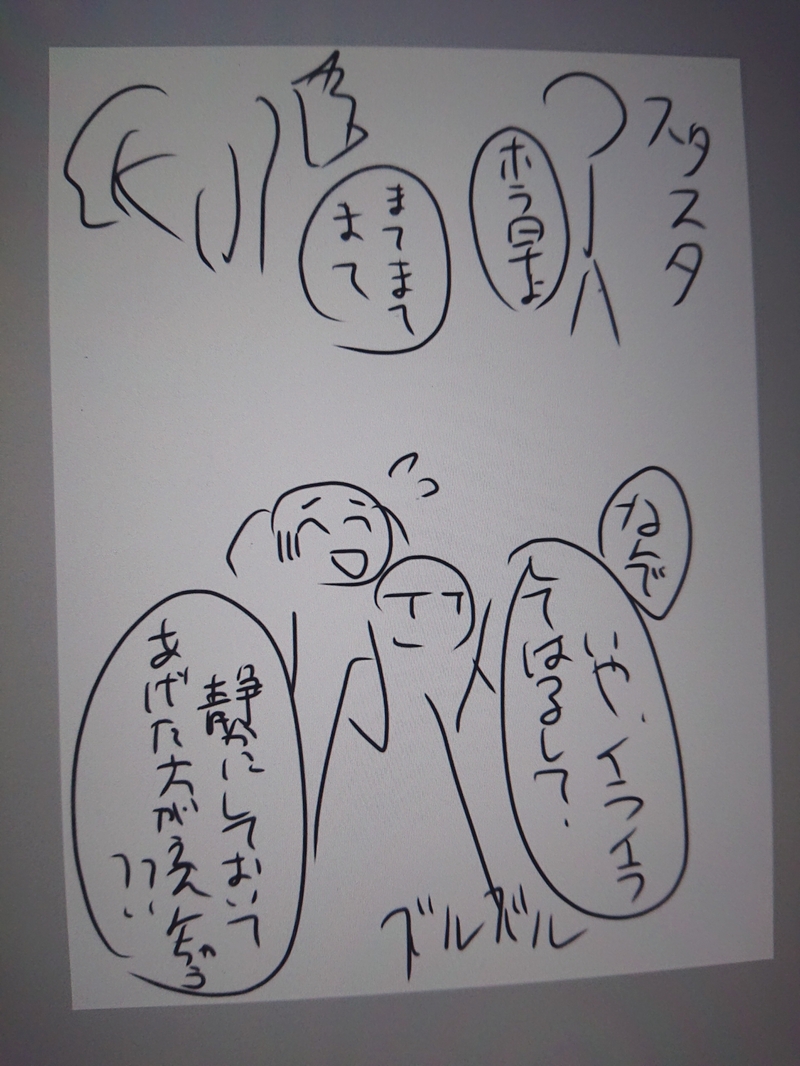 スタ
スタ
ホラ早よ
まてまて
まて
なんで
いや、イライラ
してはるして、
静かにしておいて
あげた方がええんちゃう
??
ズルズル